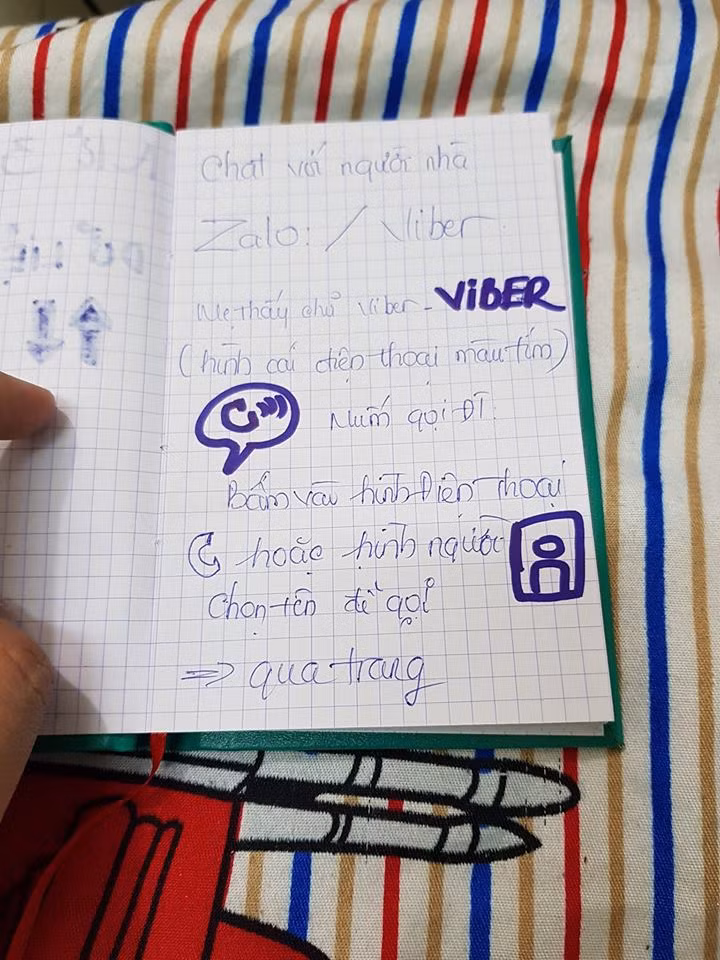 Chat với người nhà
Zalo: / Viber
Mẹ thấy chữ Viber - VIBER
(hình cái điện thoại màu tím)
Nút gọi ĐT
Bấm vào hình Điện thoại
hoặc hình người
Chọn tên để gọi
⇒ qua trang